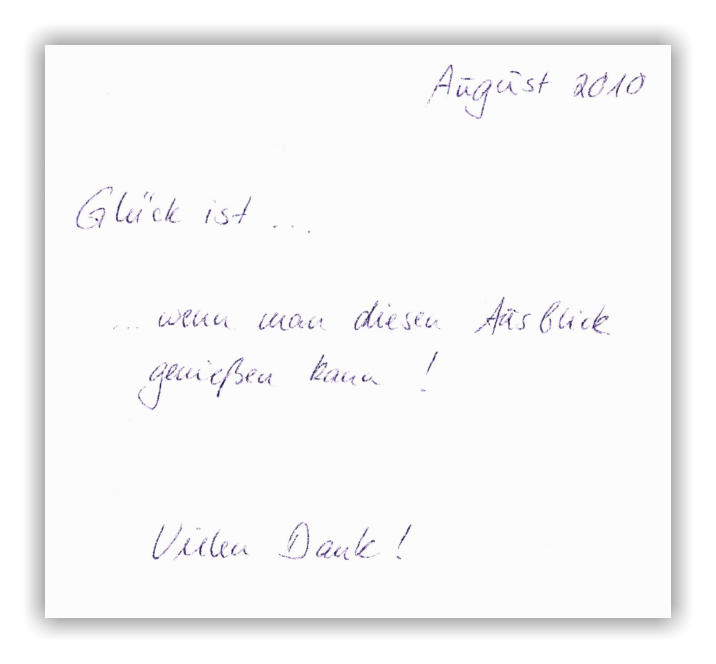 August 2010
Glück ist ...
... wenn man diesen Ausblick
genießen kann !
Vielen Dank !